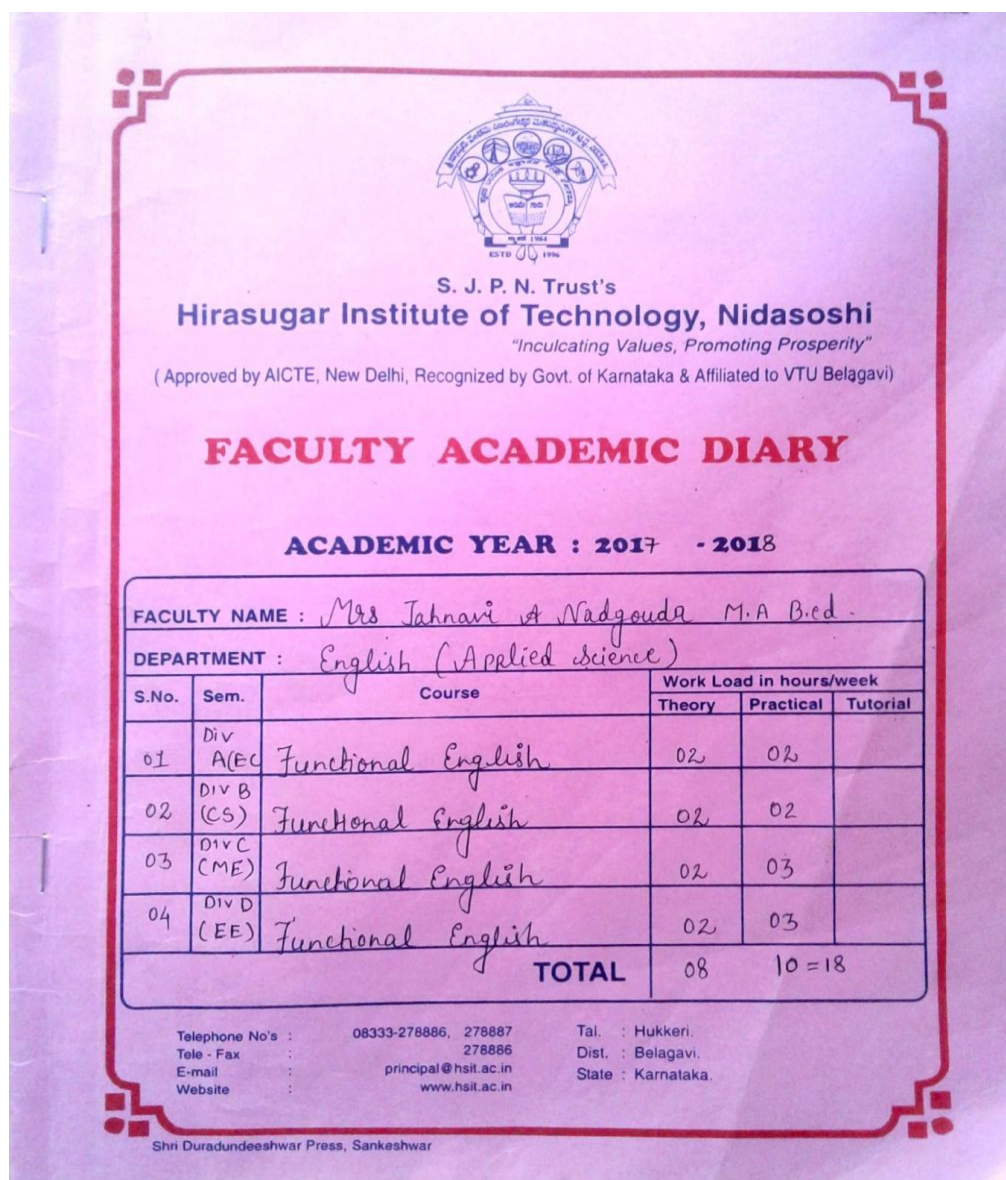 ESTD 1996
S. J. P. N. Trust's
Hirasugar Institute of Technology, Nidasoshi
"Inculcating Values, Promoting Prosperity"
( Approved by AICTE, New Delhi, Recognized by Govt. of Karnataka & Affiliated to VTU Belagavi)
FACULTY ACADEMIC DIARY
ACADEMIC YEAR : 2017 - 2018
FACULTY NAME : Mrs Jahnavi A Nadgouda M.A B.ed.
DEPARTMENT : English (Applied Science)
S.No. Sem. Course Work Load in hours/week
Theory Practical Tutorial
01 Div A(EC Functional English 02 02
02 DIV B (CS) Functional English 02 02
03 DIV C (ME) Functional English 02 03
04 DIV D (EE) Functional English 02 03
TOTAL 08 10 = 18
Telephone No's : 08333-278886, 278887 Tal. : Hukkeri.
Tele - Fax : 278886 Dist. : Belagavi.
E-mail : principal@hsit.ac.in State : Karnataka.
Website : www.hsit.ac.in
Shri Duradundeeshwar Press, Sankeshwar